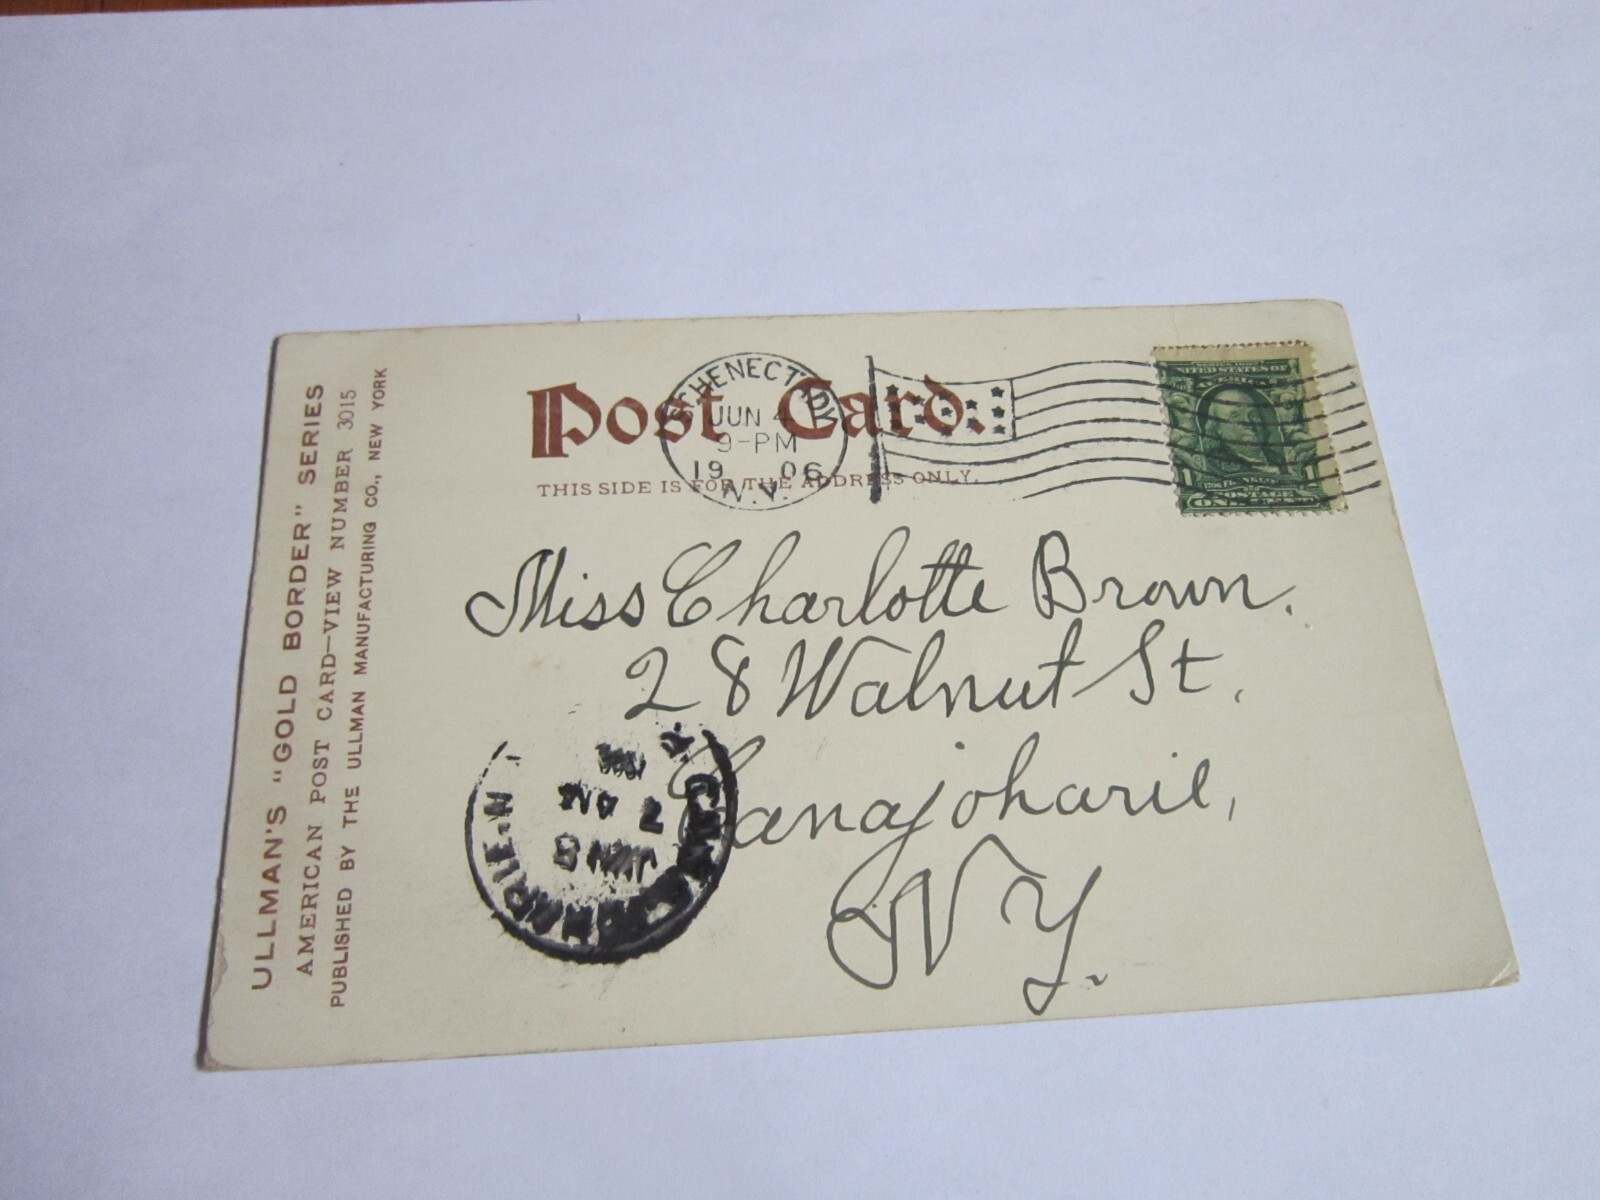 ULLMAN'S "GOLD BORDER" SERIES
AMERICAN POST CARD—VIEW NUMBER 3015
PUBLISHED BY THE ULLMAN MANUFACTURING CO., NEW YORK
Post Card.
THIS SIDE IS FOR THE ADDRESS ONLY.
SCHENECTADY
JUN 4
9-PM
1906
N.Y.
SERIES 1902
UNITED STATES OF
AMERICA
1 1
POSTAGE
ONE CENT
Miss Charlotte Brown.
28 Walnut St.
Canajoharie,
NY.
CANAJOHARIE. N.
JUN 5
7 AM
1906